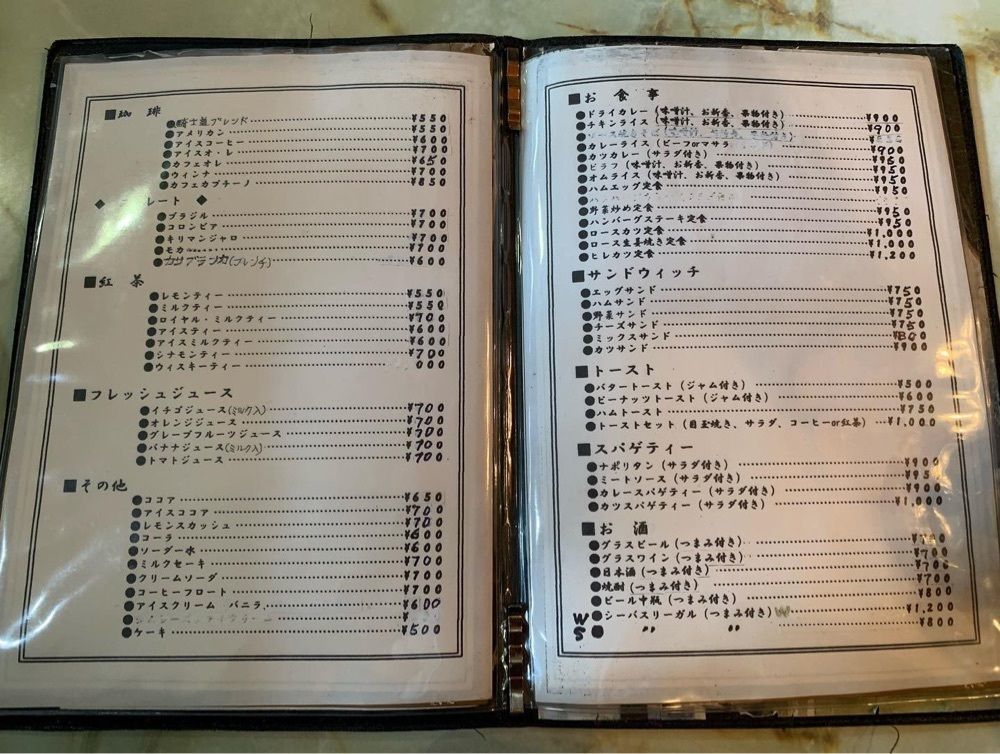 ■珈琲
●騎士道ブレンド ¥550
●アメリカン ¥550
●アイスコーヒー ¥600
●アイスオ・レ ¥700
●カフェオレ ¥650
●ウィンナ ¥700
●カフェカプチーノ ¥850
◆ レート ◆
●ブラジル ¥700
●コロンビア ¥700
●キリマンジャロ ¥700
●モカ ¥700
●カサブランカ(フレンチ) ¥600
■紅茶
●レモンティー ¥550
●ミルクティ ¥550
●ロイヤル・ミルクティー ¥700
●アイスティー ¥600
●アイスミルクティー ¥600
●シナモンティー ¥700
●ウィスキーティー 000
■フレッシュジュース
●イチゴジュース(ミルク入) ¥700
●オレンジジュース ¥700
●グレープフルーツジュース ¥700
●バナナジュース(ミルク入) ¥700
●トマトジュース ¥700
■その他
●ココア ¥650
●アイスココア ¥700
●レモンスカッシュ ¥700
●コーラ ¥600
●ソーダー水 ¥600
●ミルクセーキ ¥700
●クリームソーダ ¥700
●コーヒーフロート ¥700
●アイスクリーム バニラ ¥600
●ケーキ ¥500
■お食事
●ドライカレー(味噌汁、お新香、果物付き) ¥900
●チキンライス(味噌汁、お新香、果物付き) ¥900
●カレーライス(ビーフorマサラ
●カツカレー(サラダ付き) ¥900
●ピラフ(味噌汁、お新香、果物付き) ¥950
●オムライス(味噌汁、お新香、果物付き) ¥950
●ハムエッグ定食 ¥950
●野菜炒め定食 ¥950
●ハンバーグステーキ定食 ¥950
●ロースカツ定食 ¥1,000
●ロース生姜焼き定食 ¥1,000
●ヒレカツ定食 ¥1,200
■サンドウィッチ
●エッグサンド ¥750
●ハムサンド ¥750
●野菜サンド ¥750
●チーズサンド ¥750
●ミックスサンド
●カツサンド ¥900
■トースト
●バタートースト(ジャム付き) ¥500
●ピーナッツトースト(ジャム付き) ¥600
●ハムトースト ¥750
●トーストセット(目玉焼き、サラダ、コーヒーor紅茶) ¥1,000
■スパゲティー
●ナポリタン(サラダ付き) ¥900
●ミートソース(サラダ付き) ¥950
●カレースパゲティー(サラダ付き) ¥900
●カツスパゲティー(サラダ付き) ¥1,000
■お酒
●グラスビール(つまみ付き)
●グラスワイン(つまみ付き) ¥700
●日本酒(つまみ付き) ¥700
●焼酎(つまみ付き) ¥700
●ビール中瓶(つまみ付き) ¥800
W●シーバスリーガル(つまみ付き)W ¥1,200
S● 〃 〃 ¥800